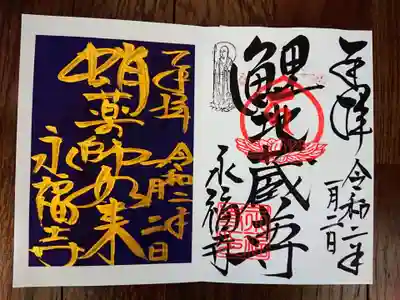 奉拝 令和二年
一月二日
鯉地蔵尊
永福寺
奉拝 令和二年
一月二日
蛸薬師如来
永福寺